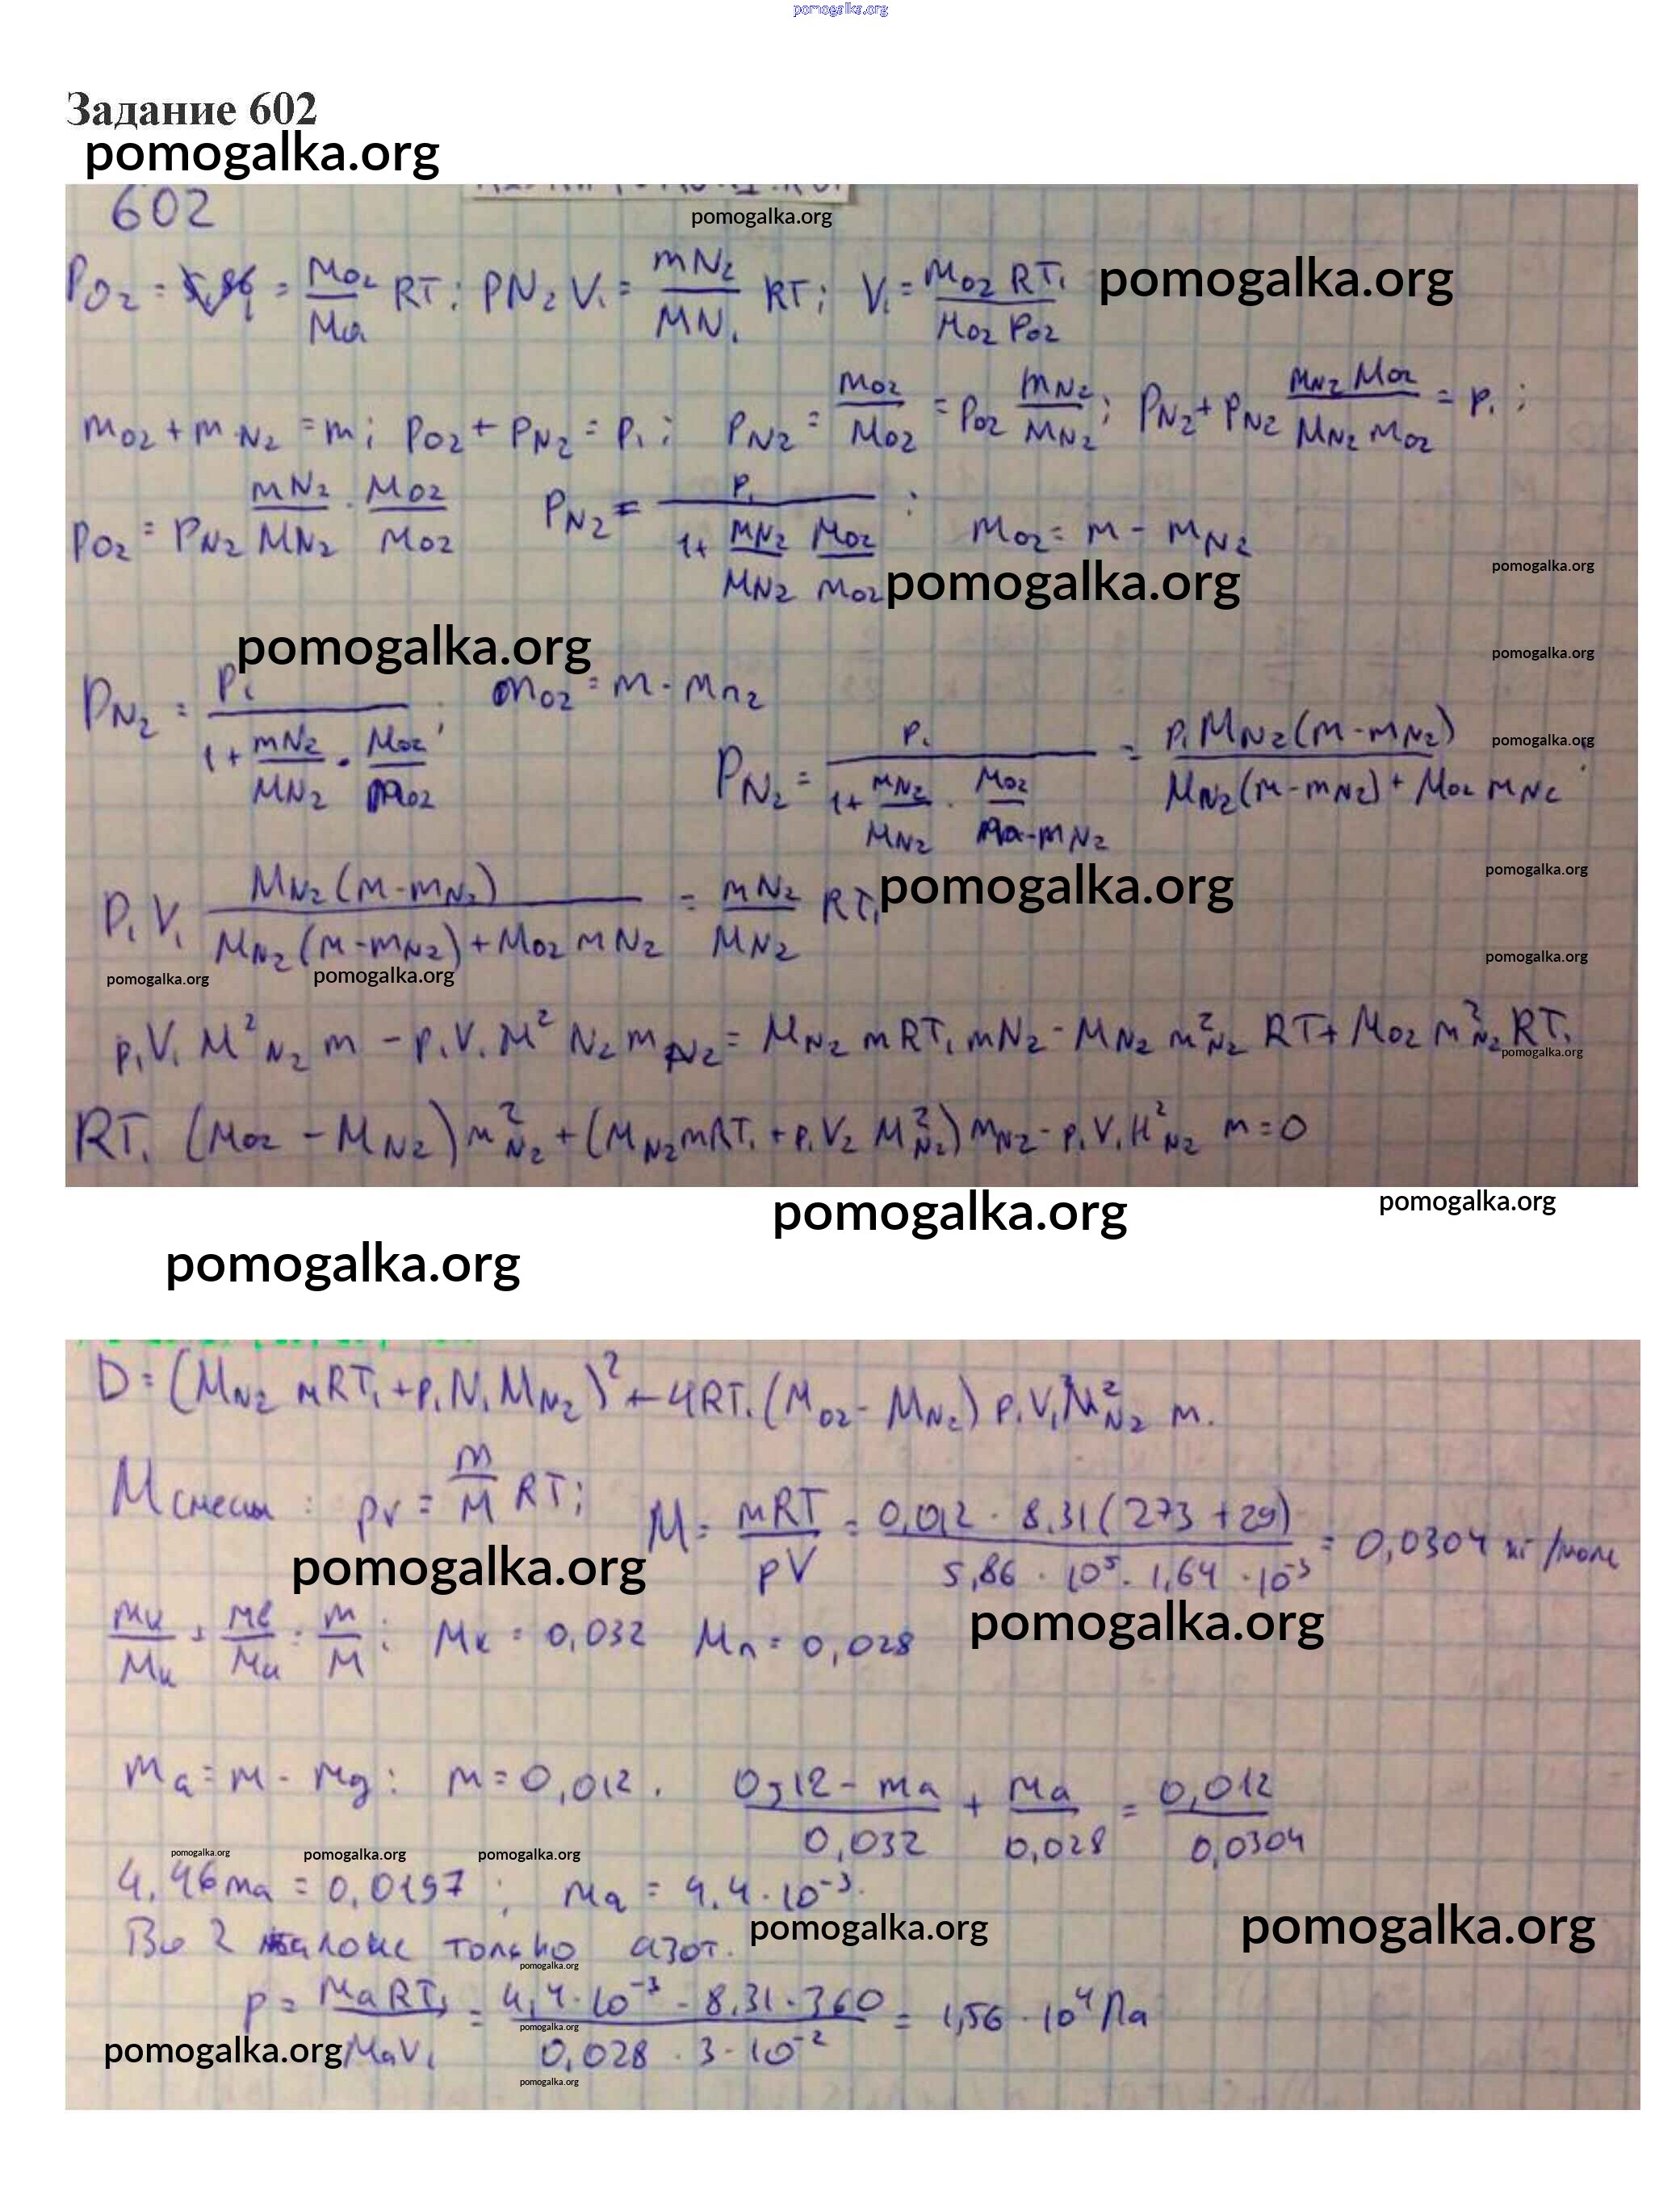 pomogalka.org
Задание 602
pomogalka.org
602
pomogalka.org
P_O2 = = M_O2/Ma RT; PN2 V1 = mN2/MN1 RT; V1 = M_O2 RT1/M_O2 P_O2
pomogalka.org
m_O2 + m_N2 = m; p_O2 + p_N2 = p1; p_N2 = m_O2/M_O2 = p_O2 m_N2/M_N2; p_N2 + p_N2 m_N2 M_O2/M_N2 m_O2 = p1;
p_O2 = p_N2 m_N2/M_N2 · M_O2/m_O2 P_N2 = P1/(1+ m_N2/M_N2 M_O2/m_O2); m_O2 = m - m_N2
pomogalka.org
pomogalka.org
pomogalka.org
pomogalka.org
P_N2 = P1/(1+ m_N2/M_N2 · M_O2/m_O2); m_O2 = m - m_n2
pomogalka.org
P_N2 = P1/(1+ m_N2/M_N2 · M_O2/m-m_N2) = P1 M_N2(m-m_N2)/M_N2(m-m_N2)+M_O2 m_N2;
pomogalka.org
P1 V1 M_N2(m-m_N2)/M_N2(m-m_N2)+M_O2 m_N2 = m_N2/M_N2 RT1
pomogalka.org
pomogalka.org
pomogalka.org
pomogalka.org
p1V1 M²_N2 m - p1V1 M²_N2 m_N2 = M_N2 mRT1 m_N2 - M_N2 m²_N2 RT + M_O2 m²_N2 RT1
pomogalka.org
RT1 (M_O2 - M_N2) m²_N2 + (M_N2 mRT1 + p1V2 M²_N2) m_N2 - p1V1 M²_N2 m = 0
pomogalka.org
pomogalka.org
pomogalka.org
D = (M_N2 mRT1 + p1N1 M_N2)² + 4RT1 (M_O2 - M_N2) p1V1 M²_N2 m.
M смеси : pv = m/M RT; M = mRT/pV = 0,012 · 8,31(273 + 29)/5,86 · 10⁵ · 1,64 · 10⁻³ = 0,0304 кг/моль
pomogalka.org
pomogalka.org
m/M; Mк = 0,032 Mп = 0,028
ma = m - mg: m = 0,012. 0,12 - ma/0,032 + ma/0,028 = 0,012/0,0304
pomogalka.org
pomogalka.org
pomogalka.org
4,46ma = 0,0197; ma = 4,4·10⁻³.
pomogalka.org
pomogalka.org
Во 2 балоне только азот.
pomogalka.org
p = MaRT1/MaV1 = 4,4·10⁻³ · 8,31·360/0,028 · 3·10⁻² = 1,56 · 10⁴ Па
pomogalka.org
pomogalka.org
pomogalka.org